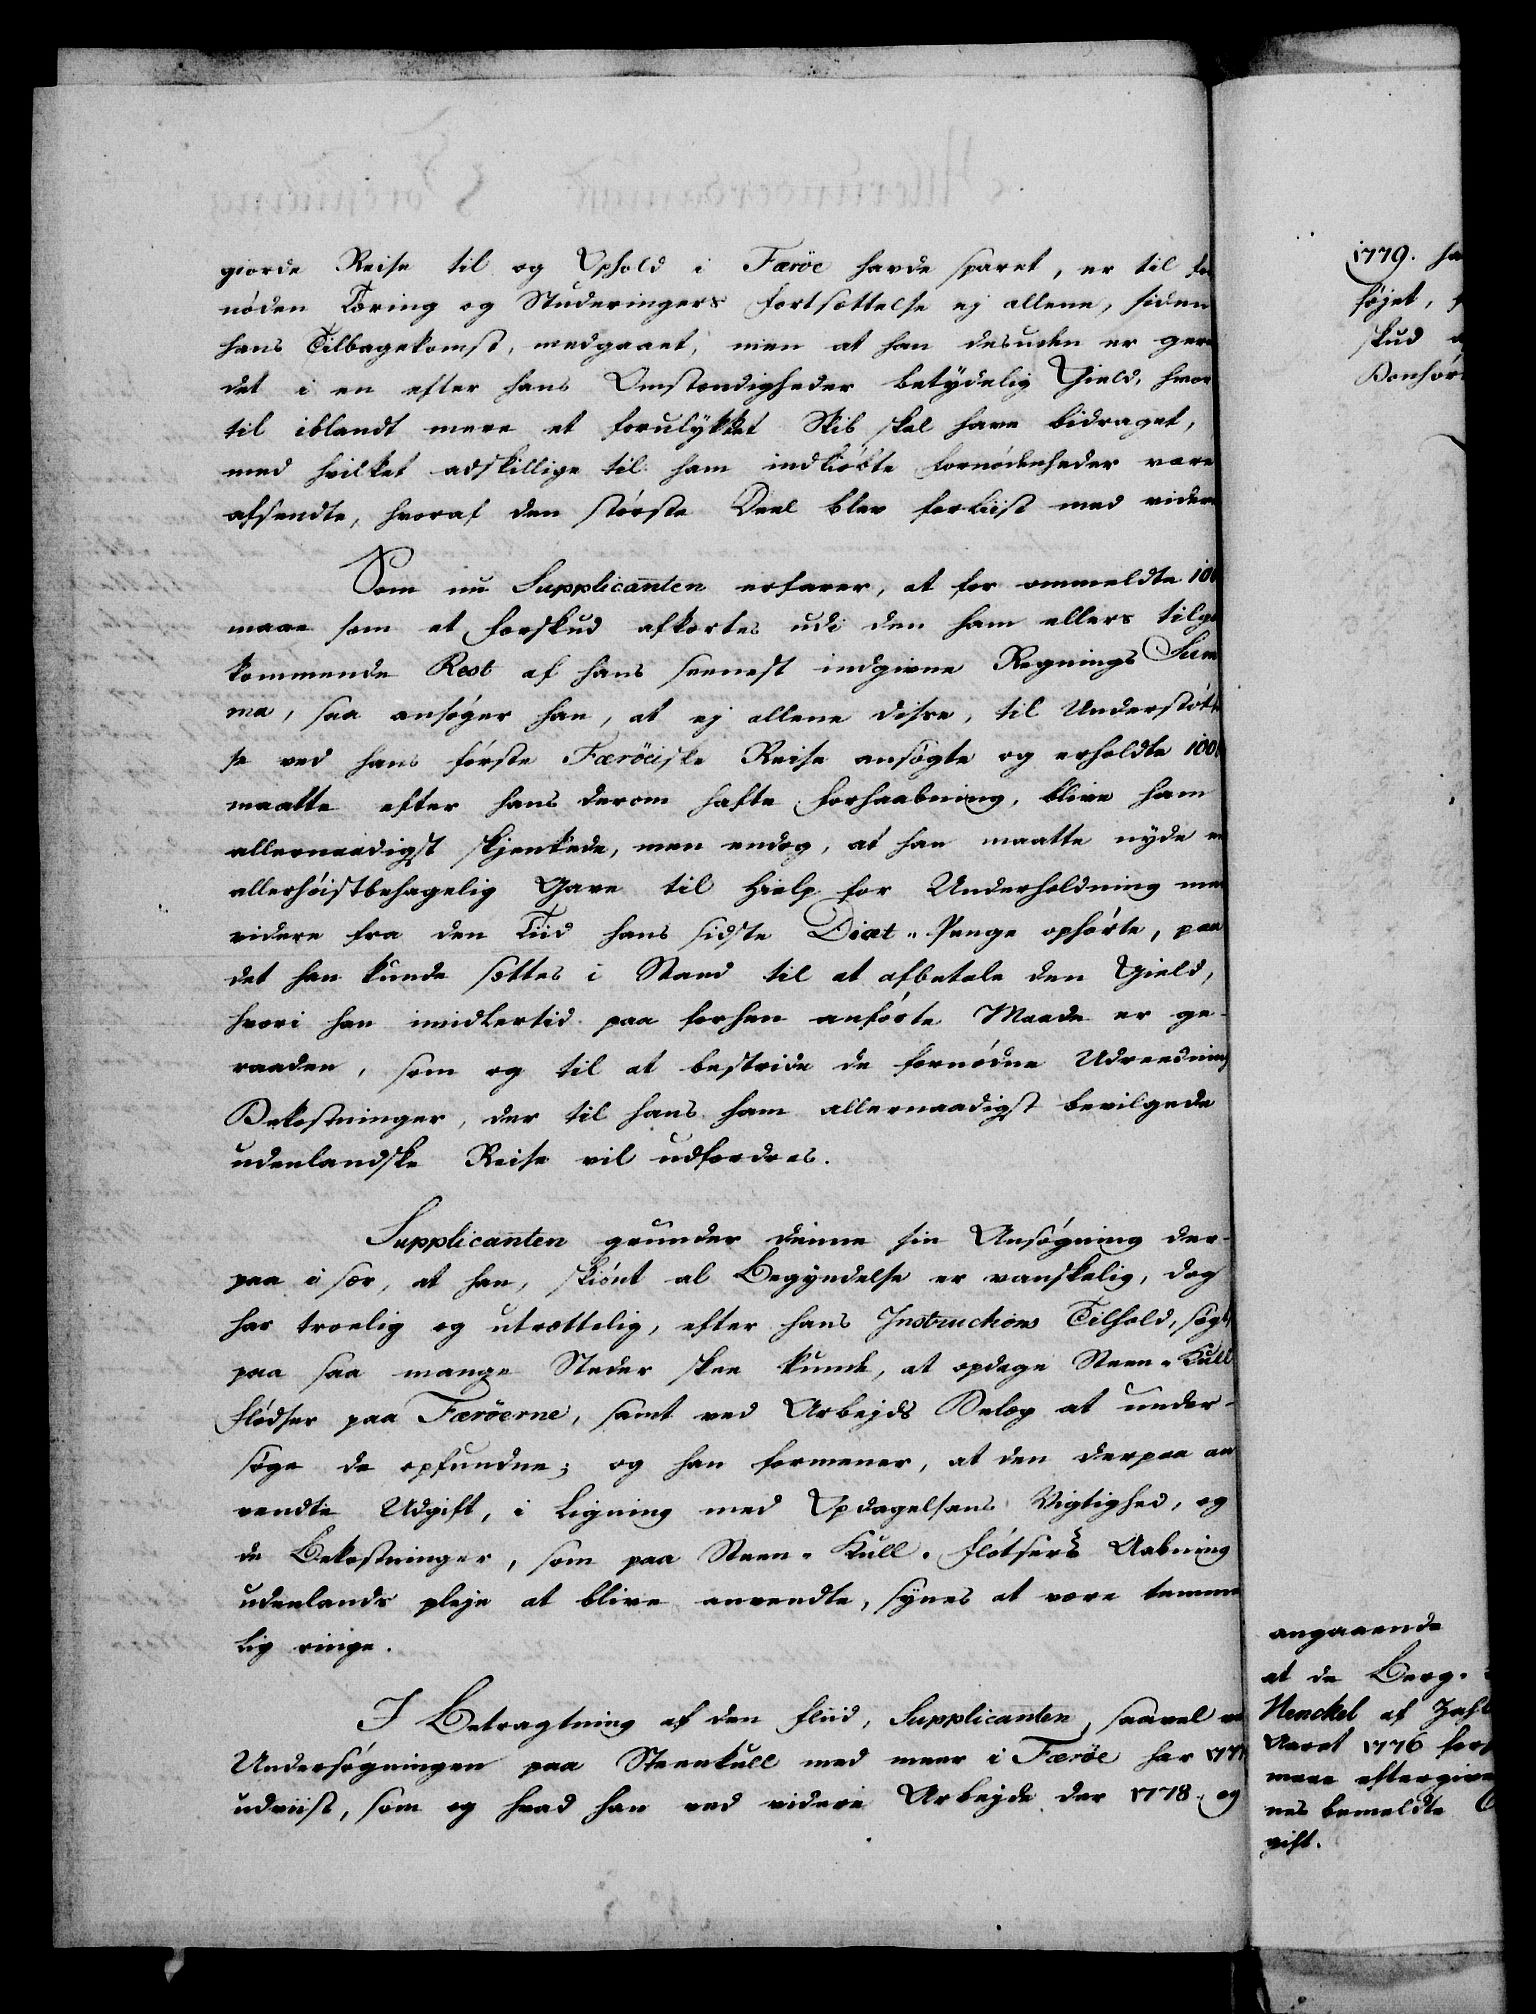 giorde Reise til og Ophold i Færöe havde sparet, er til for
nöden Tæring og Studeringers Fortsættelse ej allene, siden
hans Tilbagekomst, medgaaet, men at han desuden er gera
det i en efter hans Omstændigheder betydelig Gield, hvor
til iblandt mere et forulykket Skib skal have bidraget,
med hvilket adskillige til ham indkiöbte Fornödenheder vare
afsendte, hvoraf den störste Deel blev forliist med videre
Som nu Supplicanten erfarer, at for ommeldte 100
maae som et Forskud afkortes udi den ham ellers tilgo
kommende Rest af hans seenest indgivne Regnings Sum
ma, saa ansöger han, at ej allene disse, til Understöttel
se ved hans förste Færöeiske Reise ansögte og erholdte 100
maatte efter hans derom hafte Forhaabning, blive ham
allernaadigst skjenkede, men endog, at han maatte nyde en
allerhöistbehagelig Gave til Hielp for Underholdning med
videre fra den Tiid hans sidste Diæt-Penge ophörte, paa
det han kunde sættes i Stand til at afbetale den Gield,
hvori han imidlertid paa forhen anförte Maade er ge-
raaden, som og til at bestride de fornödne Udreednings
Bekostninger, der til hans ham allernaadigst bevilgede
udenlandske Reise vil udfordres.
Supplicanten grunder denne sin Ansögning der-
paa i sær, at han, skiönt al Begyndelse er vanskelig, dog
har troelig og utrættelig, efter hans Instructions Tilhold, sögt
paa saa mange Steder skee kunde, at opdage Steen-Kull
Flödser paa Færöerne, samt ved Arbejds Belæg at under-
söge de opfundne; og han formener, at den derpaa an
vendte Udgift, i Ligning med Opdagelsens Vigtighed, og
de Bekostninger, som paa Steen-Kull-Flötsers Aabning
udenlands pleje at blive anvendte, synes at være temme
lig ringe.
I Betragtning af den Fliid, Supplicanten, saavel ve
Undersögningen paa Steenkull med meer i Færöe har 1777
udviist, som og hvad han ved videre Arbejde der 1778. og
1779. ha
föjet,
skud
Bonhör
angaaende
at de Berg-
Henckel af Zahl
Aaret 1776 for
mere eftergive
nes bemeldte
gift.